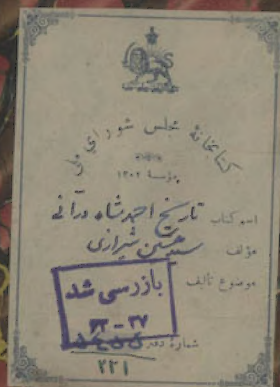 کتابخانهٔ مجلس شورای ملی
مؤسسهٔ ۱۳۰۲
اسم کتاب تاریخ احمد شاه درانی
مؤلف سید حسین شیرازی
موضوع تألیف
بازرسی شد
۳۷ - ۶۳
شماره دفتر
۲۲۱